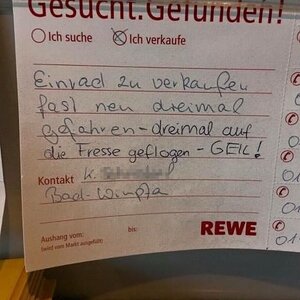 Gesucht.Gefunden!
Ich suche Ich verkaufe
Einrad zu verkaufen
fast neu dreimal
gefahren - dreimal auf
die Fresse geflogen - GEIL!
Kontakt K.
Bad-Wimpfa
Aushang vom: bis: REWE
(wird vom Markt ausgefüllt)